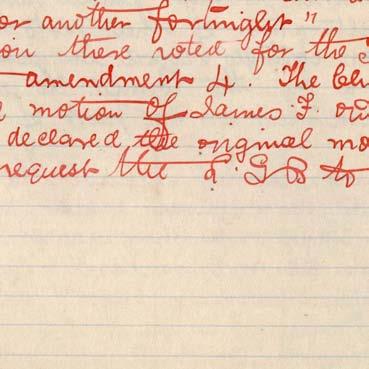 or another fortnight"
on there voted for the
amendment 4. The
motion of James F.
declared the original mo
request the a. G B to